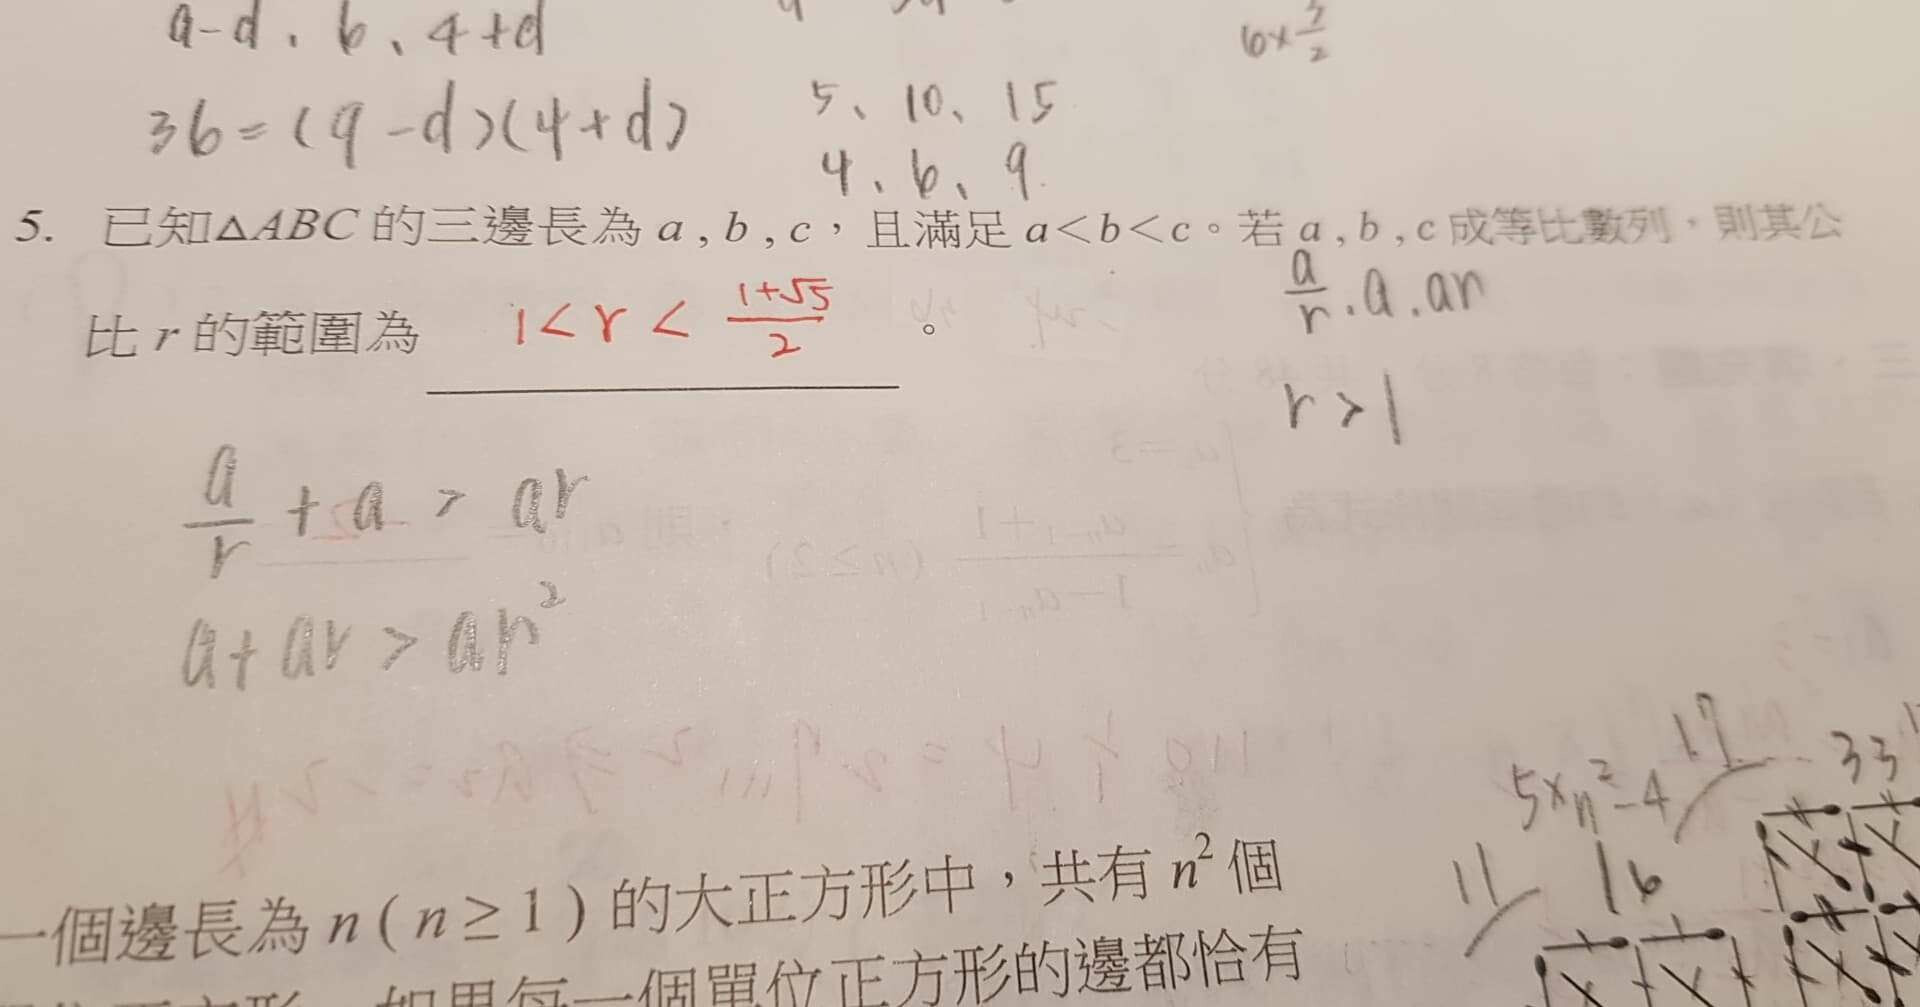 a-d、6、4+d
6×3/2
36=(9-d)(4+d)
5、10、15
4、6、9
5. 已知△ABC 的三邊長為 a , b , c，且滿足 a<b<c。若 a , b , c 成等比數列，則其公
a/r . a . ar
比 r 的範圍為 1<r<(1+√5)/2 。
r>1
a/r + a > ar
a+ar>ar²
5×n²-4
17
33
一個邊長為 n ( n ≥ 1 ) 的大正方形中，共有 n² 個
11
16
如果每一個單位正方形的邊都恰有